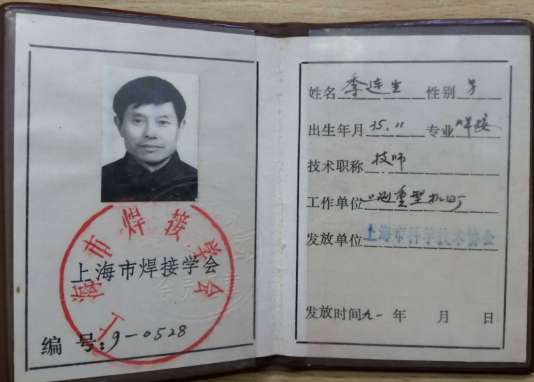 上海市焊接学会
上海市焊接学会
编号:9-0528
姓名 季连生 性别 男
出生年月 35.11 专业 焊接
技术职称 技师
工作单位 上海重型机器厂
发放单位 上海市科学技术协会
发放时间 九一 年 月 日